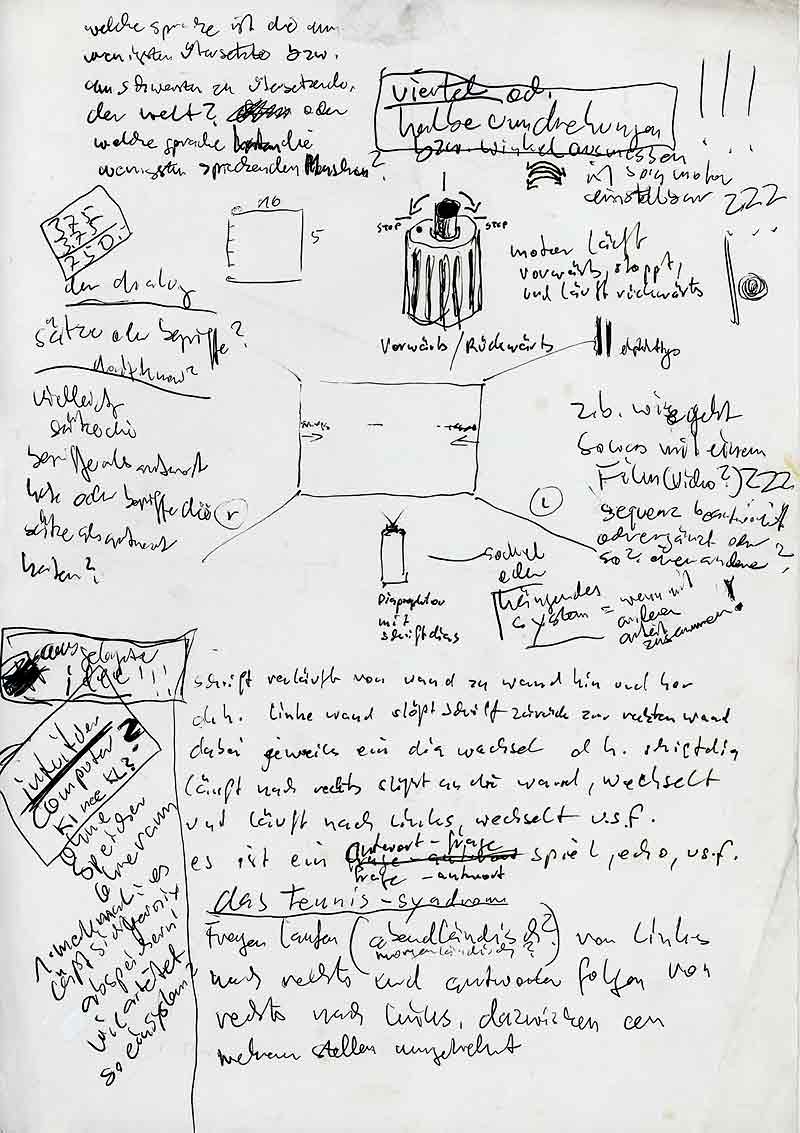 welche sprache ist die am
wenigsten übersetzte bzw.
am schwersten zu übersetzende,
der welt? oder
welche sprache die
wenigsten sprechenden Menschen?
viertel od.
halbe umdrehungen
bzw. winkel
ist beim motor
einstellbar
!!!
ZZZ
375
375
750.-
16
5
STOP
STOP
motor läuft
vorwärts, stoppt,
und läuft rückwärts
Vorwärts / Rückwärts
der dialog
sätze oder begriffe?
vielleicht
sätze die
begriffe als antwort
habe oder begriffe die
sätze als antwort
haben?
r
L
z.b. wie geht
sowas mit einem
Film (Video?) ZZZ
sequenz
oder
so? eher andere?
Diaprojektor
mit
schriftdias
sockel
oder
hängendes
system = wenn mit
anderer
arbeit
zusammen!
idee!!!
intuit der
computer?
KI nee KL?
ohne
speicher
1. mal
läßt sich
abspeichern
so ein system?
schrift verläuft von wand zu wand hin und her
d.h. linke wand stößt schrift zurück zur rechten wand
dabei jeweils ein dia wechsel d.h. schriftdia
läuft nach rechts stößt an die wand, wechselt
und läuft nach links, wechselt u.s.f.
antwort-frage
es ist ein spiel, echo, u.s.f.
frage-antwort
das Tennis-syndrom
Fragen laufen (abendländisch?) von links
morgenländisch?
nach rechts und antworten folgen von
rechts nach links, dazwischen an
mehreren stellen umgekehrt